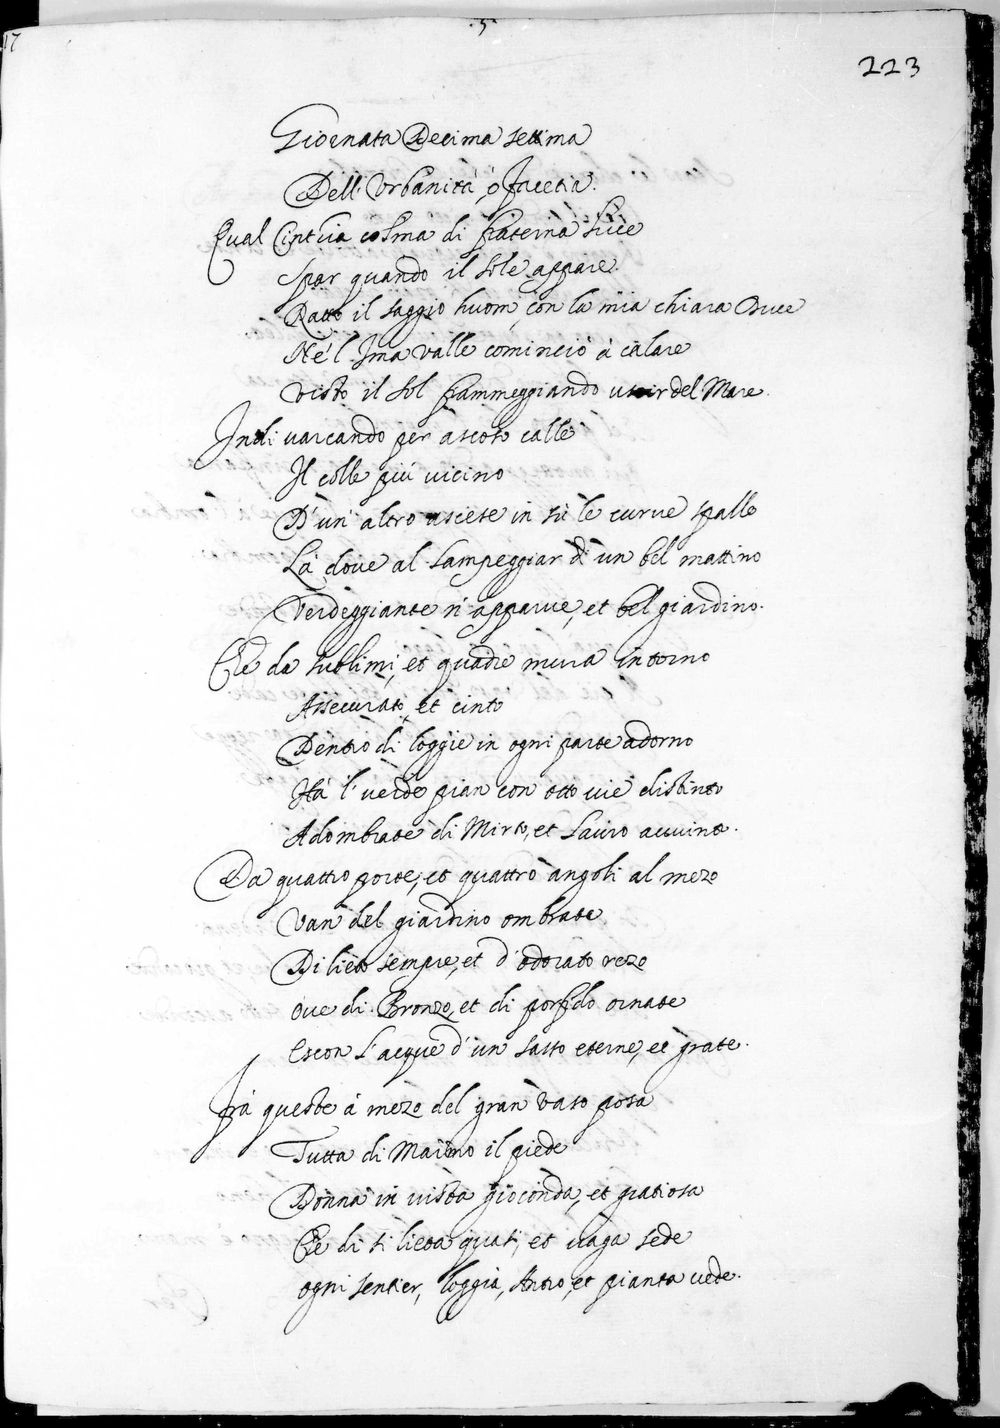 17
5
223
Giornata Decima settima
Dell. Urbanità, ò facetia.
Qual Cinthia colma di fraterna luce
Spar quando il sole appare.
Ratto il saggio huom, con la mia chiara Duce
Ne'l Ima valle cominciò à calare
Visto il Sol fiammeggiando uscir del Mare.
Indi varcando per ascoso calle
Il colle più vicino
D'un' altro ascese in sù le curve spalle
Là dove al lampeggiar di un bel mattino
Verdeggiante n' apparve, et bel giardino.
Che da sublimi, et quadre mura intorno
Assecurato, et cinto
Dentro di loggie in ogni parte adorno
Hà l' verde pian con otto vie distinto
Adombrate di Mirto, et Lauro avvinto.
Da quattro porte, et quattro angoli al mezo
Van del giardino ombrate
Di lieto sempre, et d' odorato rezo
Ove di Bronzo, et di porfido ornate
Escon l'acque d'un sasso eterne, et grate.
Frà queste à mezo del gran vaso posa
Tutta di Marmo il piede
Donna in vista gioconda, et gratiosa
Che di sì lieta quasi, et vaga sede
Ogni sentier, loggia, Antro, et pianta vede.